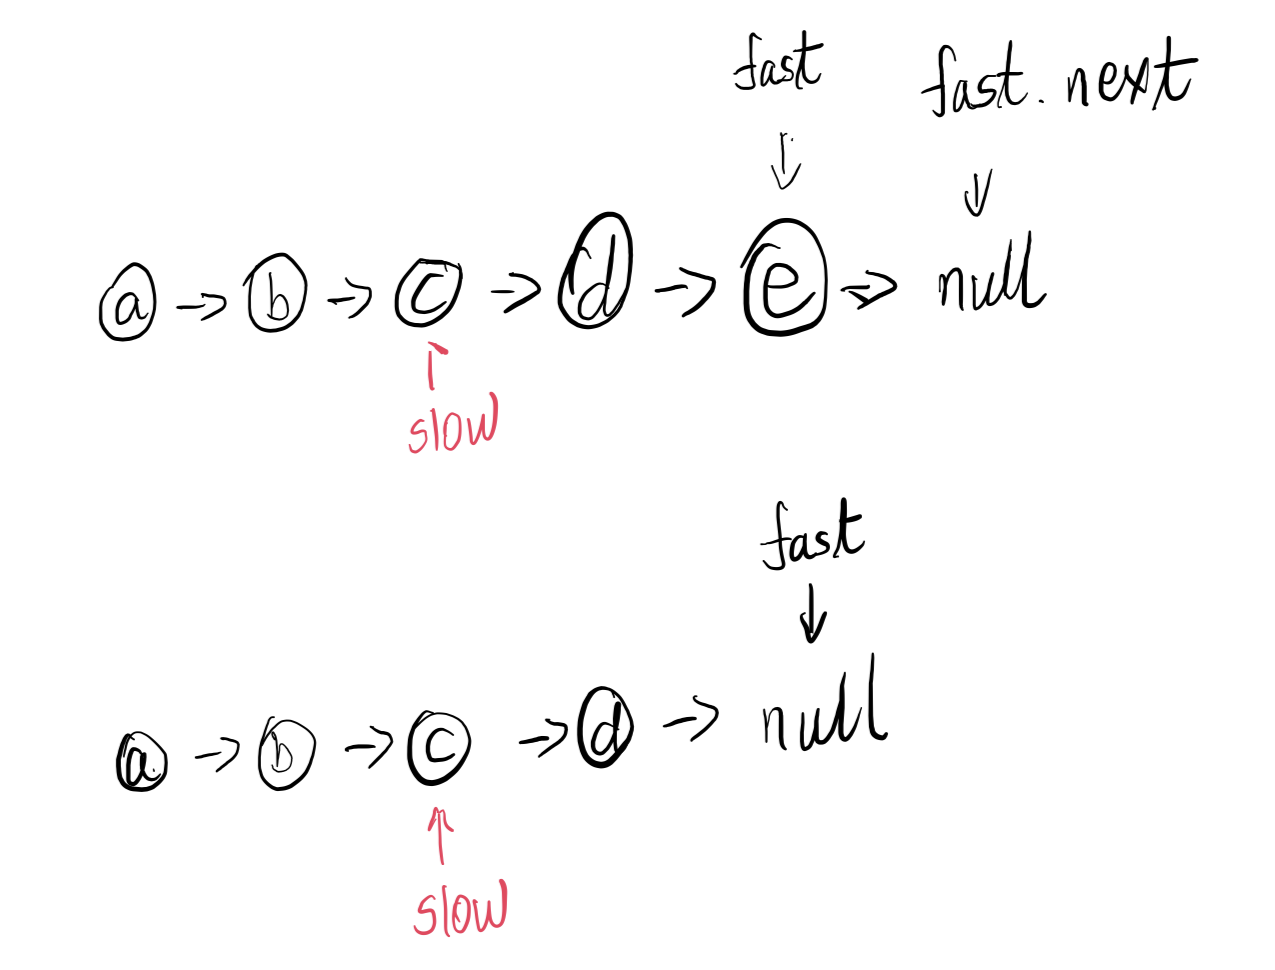 fast fast.next
a → b → c → d → e → null
slow
fast
a → b → c → d → null
slow